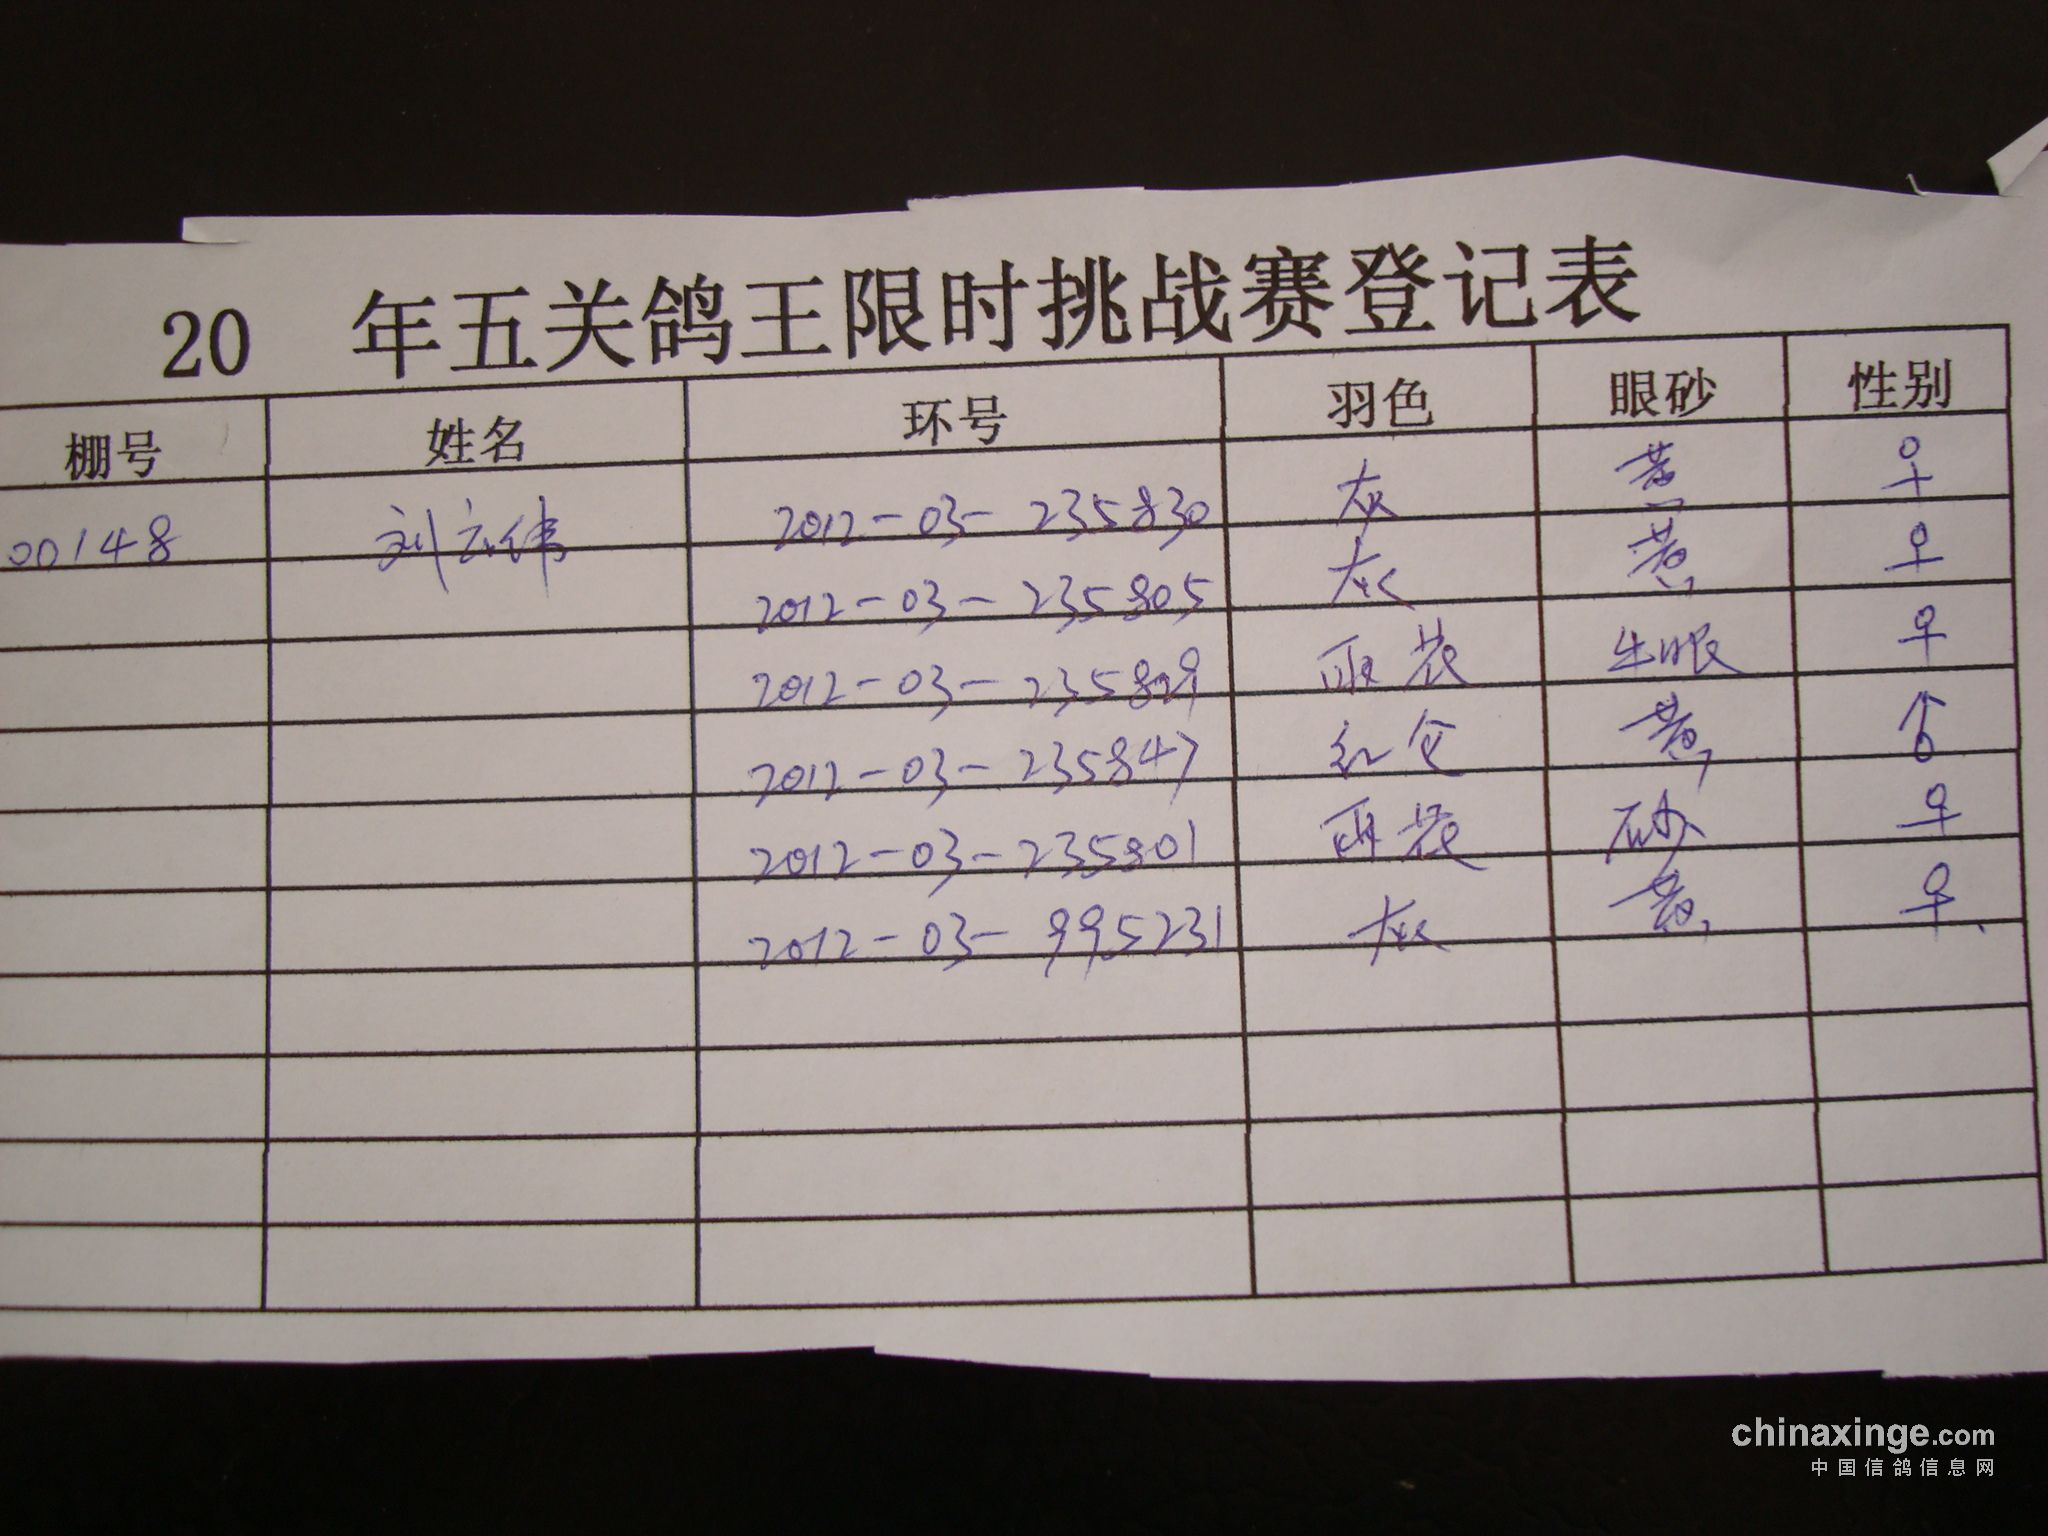 20 年五关鸽王限时挑战赛登记表
棚号 姓名 环号 羽色 眼砂 性别
00148 刘云伟 2012-03-235830 灰 黄 ♀
2012-03-235805 灰 黄 ♀
2012-03-235829 雨花 牛眼 ♀
2012-03-235847 红仑 黄 ♂
2012-03-235801 雨花 砂 ♀
2012-03-995231 灰 黄 ♀
chinaxinge.com
中国信鸽信息网